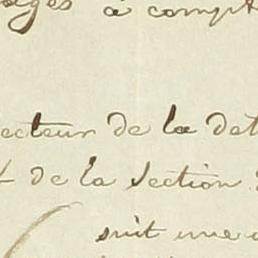 à compt
ecteur de la det
de la section
suit une